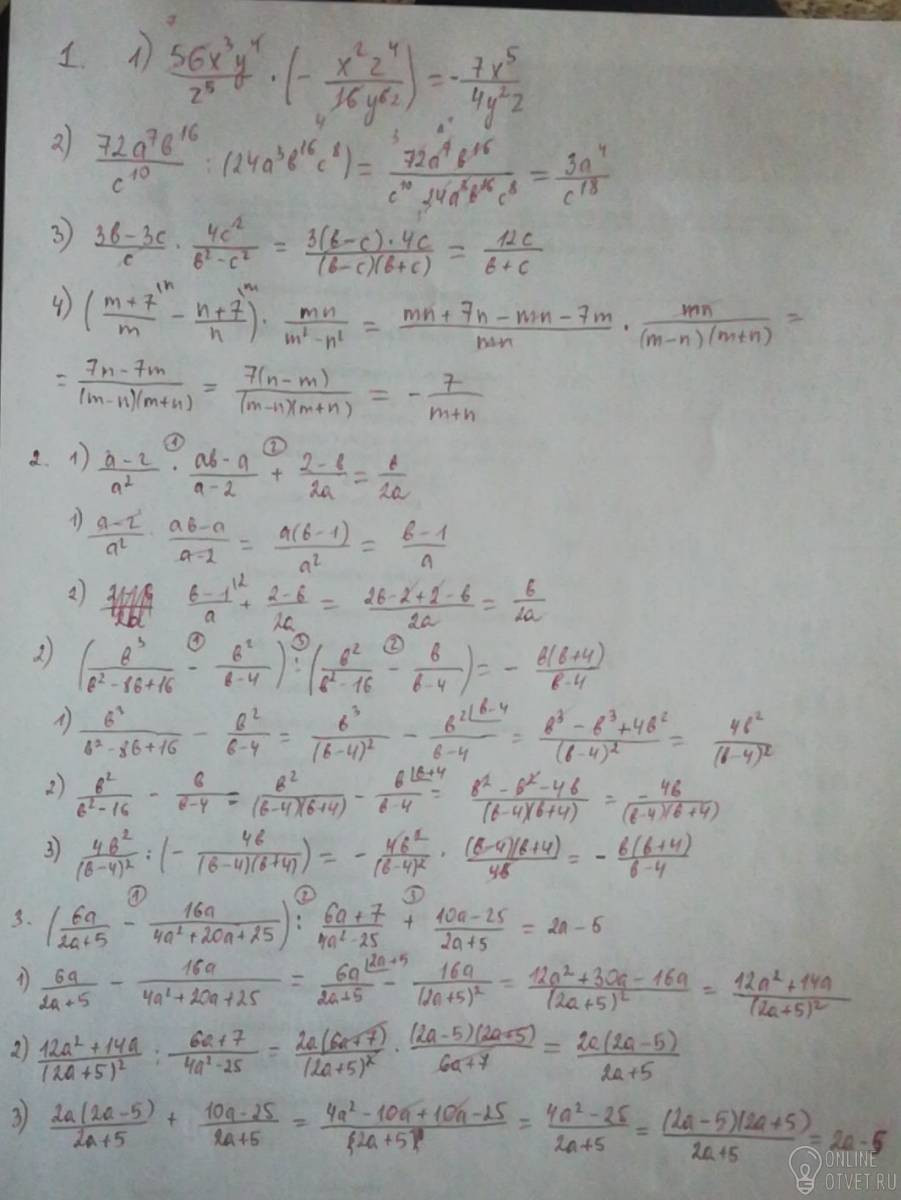 1. 1) 56x³y⁴/z⁵ · (− x²z⁴/16y⁶z) = −7x⁵/4y²z
2) 72a⁷b¹⁶/c¹⁰ : (24a³b¹⁶c⁸) = 72a⁷b¹⁶/c¹⁰ 24a³b¹⁶c⁸ = 3a⁴/c¹⁸
3) 3b−3c/c · 4c²/b²−c² = 3(b−c)·4c/(b−c)(b+c) = 12c/b+c
4) (m+7\ⁿ/m − n+7\ᵐ/n) · mn/m²−n² = mn+7n−mn−7m/mn · mn/(m−n)(m+n) =
= 7n−7m/(m−n)(m+n) = 7(n−m)/(m−n)(m+n) = −7/m+n
2. 1) a−2/a² ·① ab−a/a−2 +② 2−b/2a = b/2a
1) a−2/a² · ab−a/a−2 = a(b−1)/a² = b−1/a
2) b−1\²/a + 2−b/2a = 2b−2+2−b/2a = b/2a
2) (b³/b²−8b+16 −① b²/b−4) :③ (b²/b²−16 −② b/b−4) = − b(b+4)/b−4
1) b³/b²−8b+16 − b²/b−4 = b³/(b−4)² − b²|b−4/b−4 = b³−b³+4b²/(b−4)² = 4b²/(b−4)²
2) b²/b²−16 − b/b−4 = b²/(b−4)(b+4) − b|b+4/b−4 = b²−b²−4b/(b−4)(b+4) = −4b/(b−4)(b+4)
3) 4b²/(b−4)² : (− 4b/(b−4)(b+4)) = − 4b²/(b−4)² · (b−4)(b+4)/4b = − b(b+4)/b−4
3. (6a/2a+5 −① 16a/4a²+20a+25) :② 6a+7/4a²−25 +③ 10a−25/2a+5 = 2a−5
1) 6a/2a+5 − 16a/4a²+20a+25 = 6a|2a+5/2a+5 − 16a/(2a+5)² = 12a²+30a−16a/(2a+5)² = 12a²+14a/(2a+5)²
2) 12a²+14a/(2a+5)² : 6a+7/4a²−25 = 2a(6a+7)/(2a+5)² · (2a−5)(2a+5)/6a+7 = 2a(2a−5)/2a+5
3) 2a(2a−5)/2a+5 + 10a−25/2a+5 = 4a²−10a+10a−25/(2a+5) = 4a²−25/2a+5 = (2a−5)(2a+5)/2a+5 = 2a−5
ONLINE
OTVET.RU